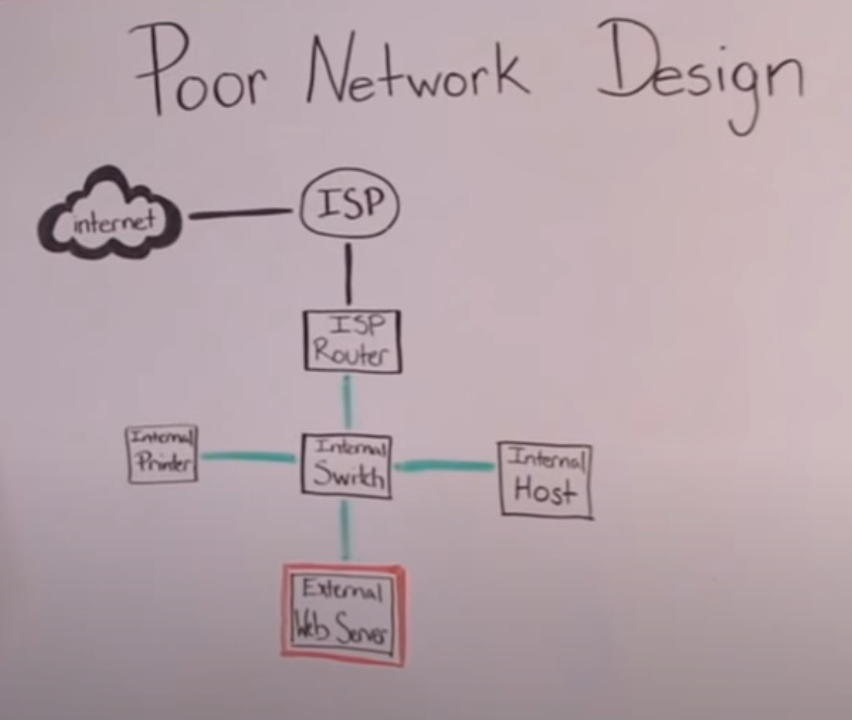 Poor Network Design
internet
ISP
ISP
Router
Internal
Printer
Internal
Switch
Internal
Host
External
Web Server